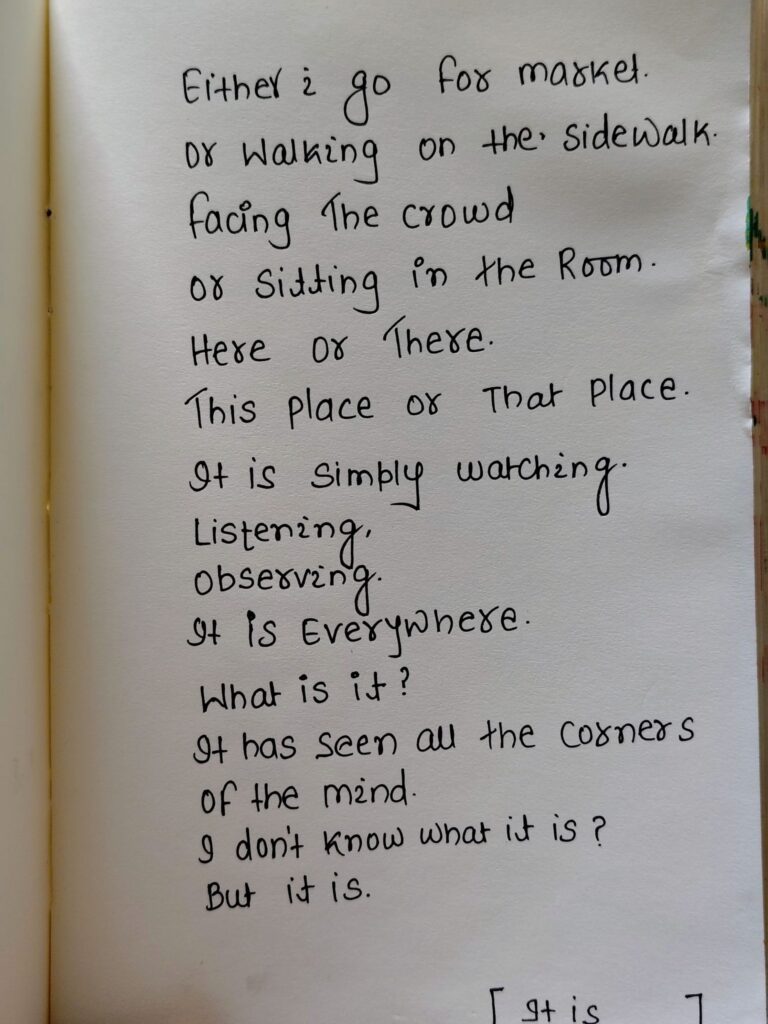 Either i go for market.
or walking on the sidewalk.
facing The crowd
or sitting in the Room.
Here or There.
This place or That place.
It is simply watching.
Listening,
observing.
It is Everywhere.
What is it?
It has seen all the corners
of the mind.
I don't know what it is?
But it is.
[ It is ]